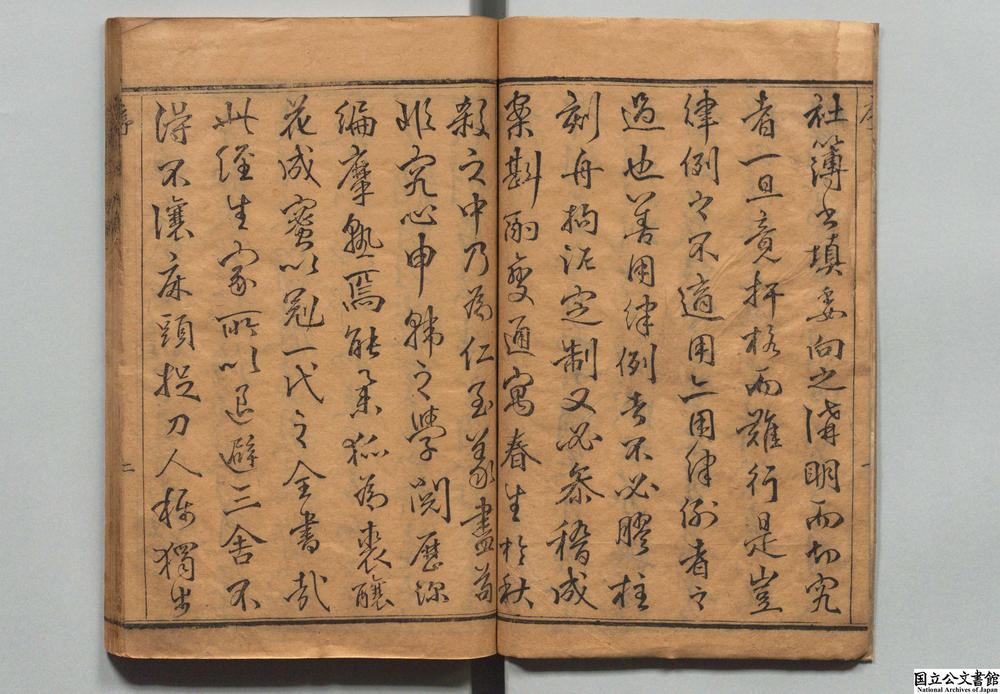 社簿書填委向之講明而切究
者一旦竟扞格而難行是豈
律例之不適用亦用律例者之
過也善用律例者不必膠柱
刻舟拘泥定制又必參稽成
案斟酌變通寓春生於秋
殺之中乃為仁至義盡苟
非究心申韓之學閱歷深
編摩熟焉能集狐為裘釀
花成蜜以冠一代之全書哉
此經生家所以退避三舍不
得不讓床頭捉刀人獨步
序
二
国立公文書館
National Archives of Japan